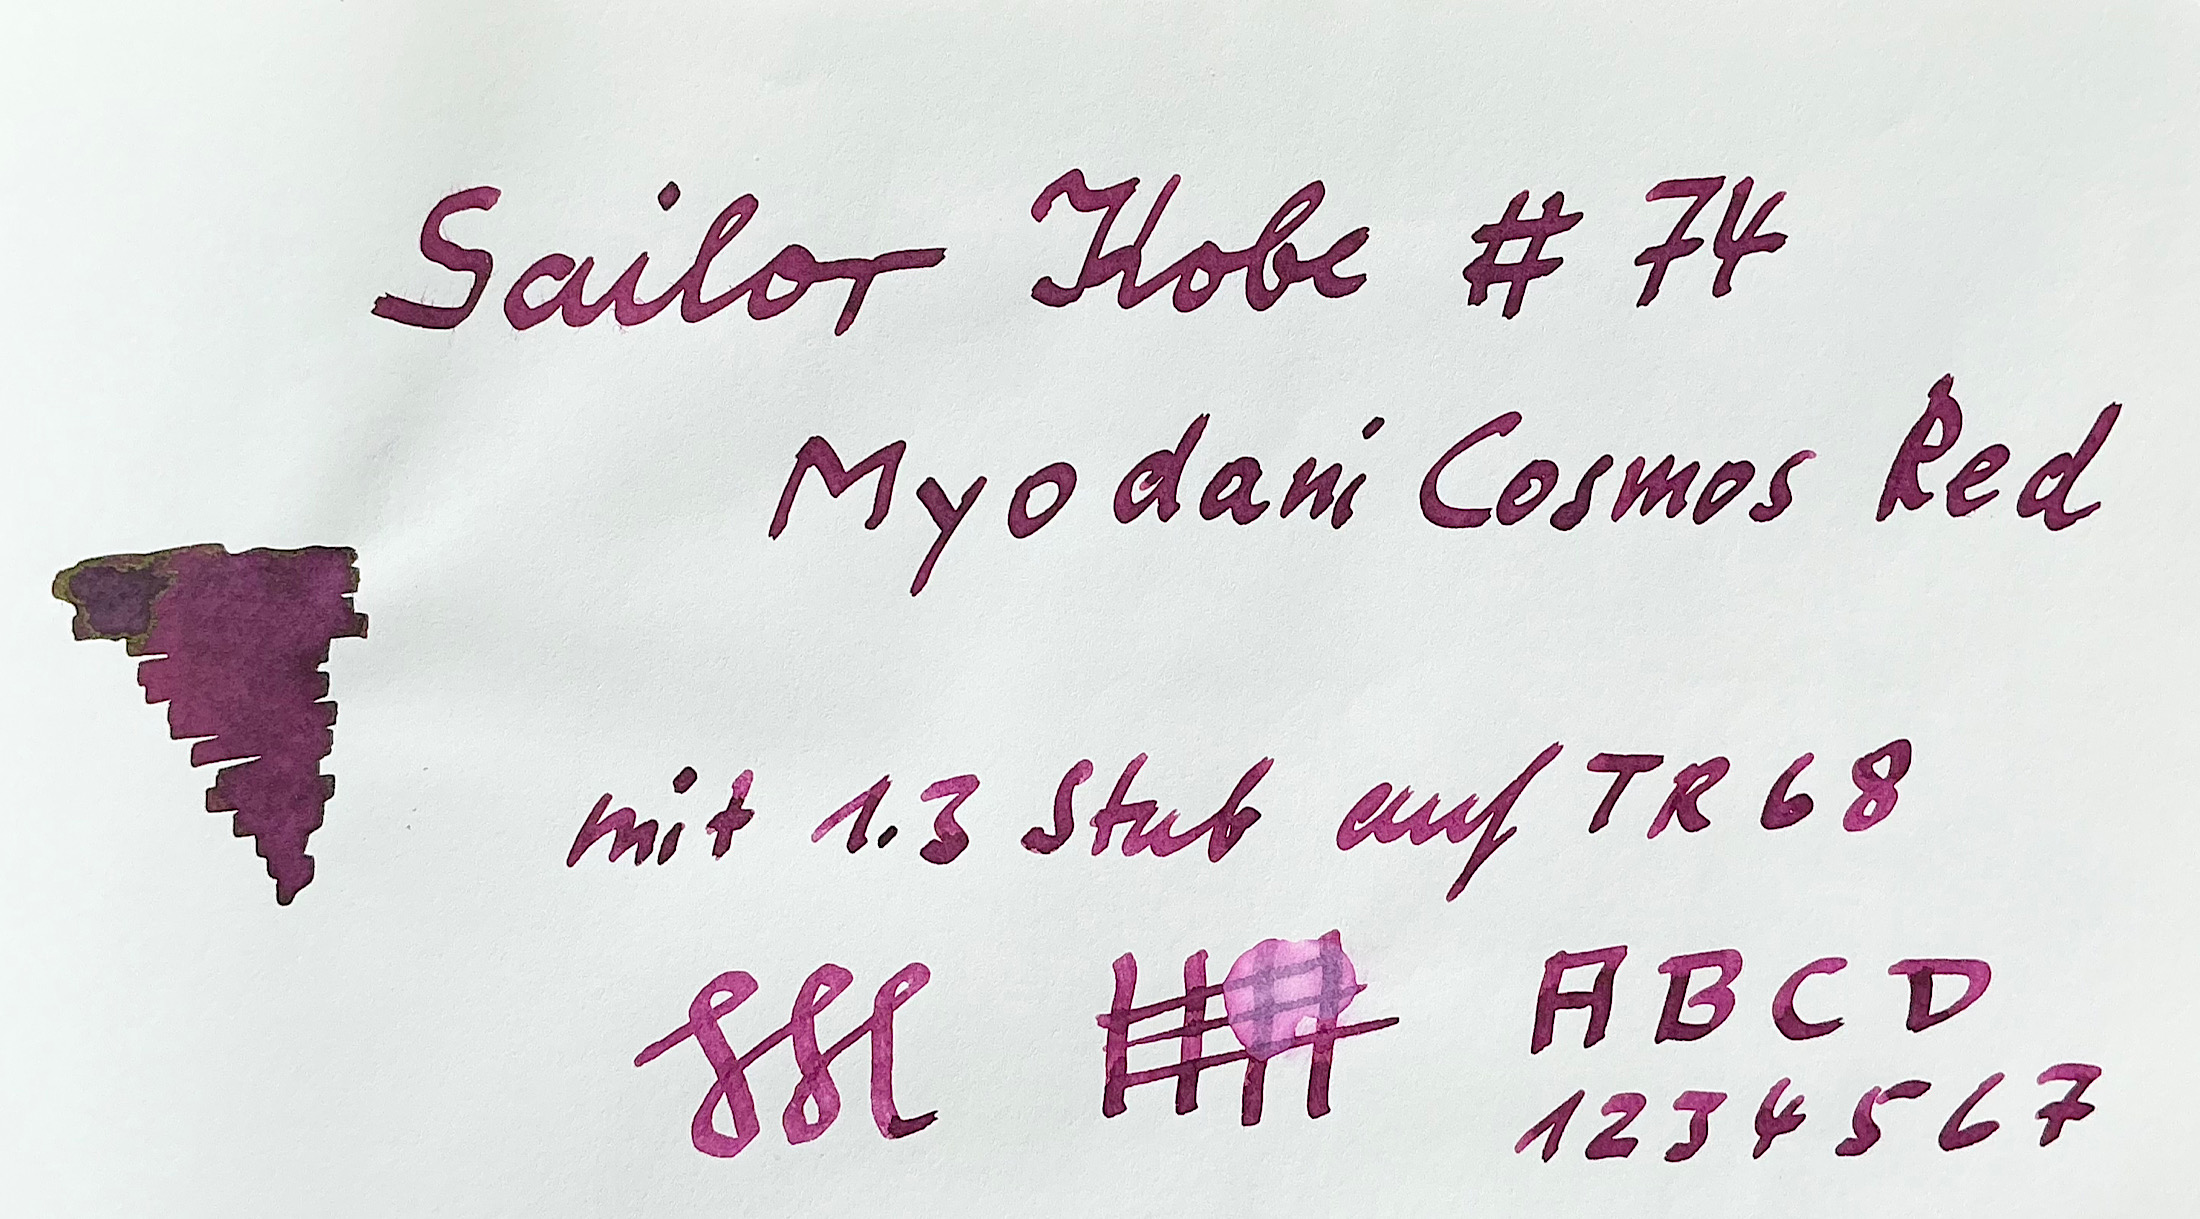 Sailor Kobe # 74
Myodani Cosmos Red
mit 1.3 Stub auf TR 68
A B C D
1 2 3 4 5 6 7